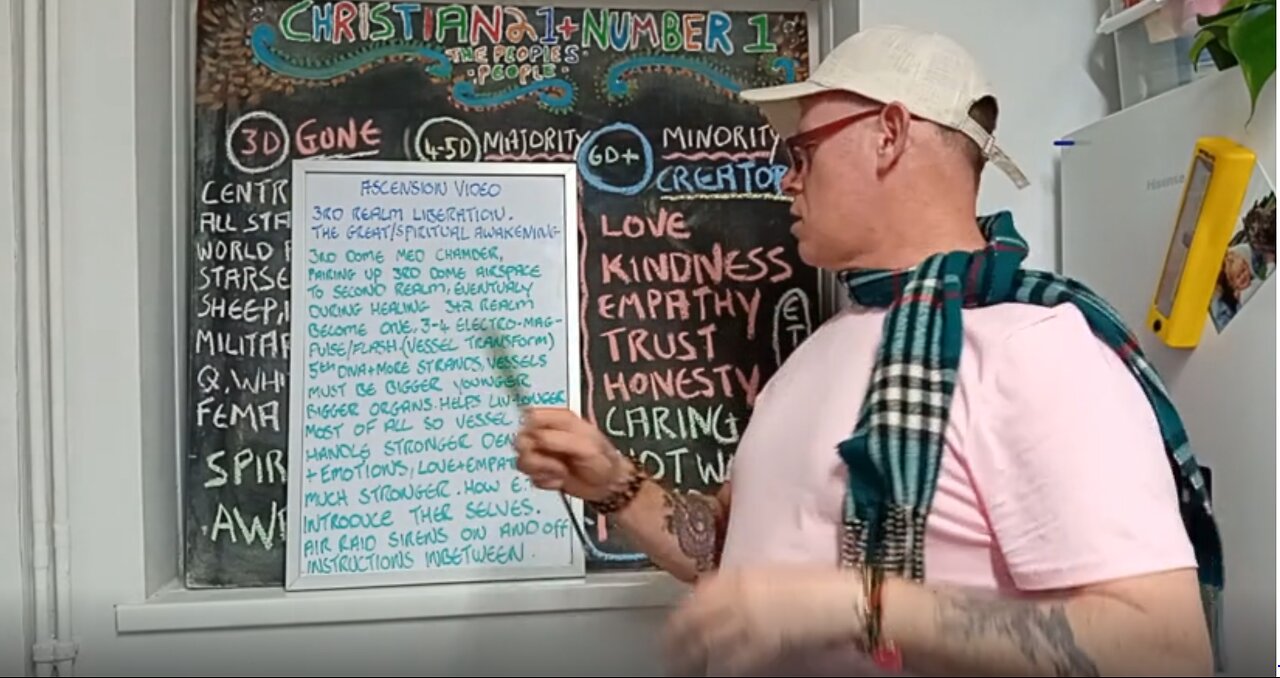 CHRISTIAN21+NUMBER 1
THE PEOPLES
PEOPLE
3D GONE
4-5D MAJORITY
6D+ MINORITY
CREATOR
CENTR
ALL STA
WORLD
STARSE
SHEEP,
MILITAR
Q, WHI
FEMA
SPIR
AW
ASCENSION VIDEO
3RD REALM LIBERATION.
THE GREAT/SPIRITUAL AWAKENING
3RD DOME MED CHAMBER,
PAIRING UP 3RD DOME AIRSPACE
TO SECOND REALM, EVENTUALY
DURING HEALING 3+2 REALM
BECOME ONE. 3-4 ELECTRO-MAG-
PULSE/FLASH.(VESSEL TRANSFORM)
5th DNA+MORE STRANDS, VESSELS
MUST BE BIGGER YOUNGER
BIGGER ORGANS. HELPS LIV LONGER
MOST OF ALL SO VESSEL
HANDLE STRONGER DEN
+EMOTIONS, LOVE+EMPAT
MUCH STRONGER. HOW E
INTRODUCE THER SELVES.
AIR RAID SIRENS ON AND OFF
INSTRUCTIONS INBETWEEN.
LOVE
KINDNESS
EMPATHY
TRUST
HONESTY
CARING
NOT W
ET
Hisense